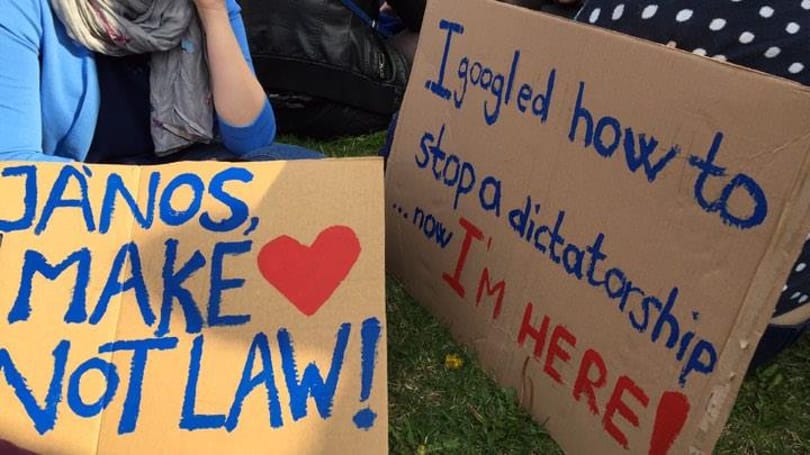 JÁNOS,
MAKE
NOT LAW!
I googled how to
stop a dictatorship
...now I'M HERE!